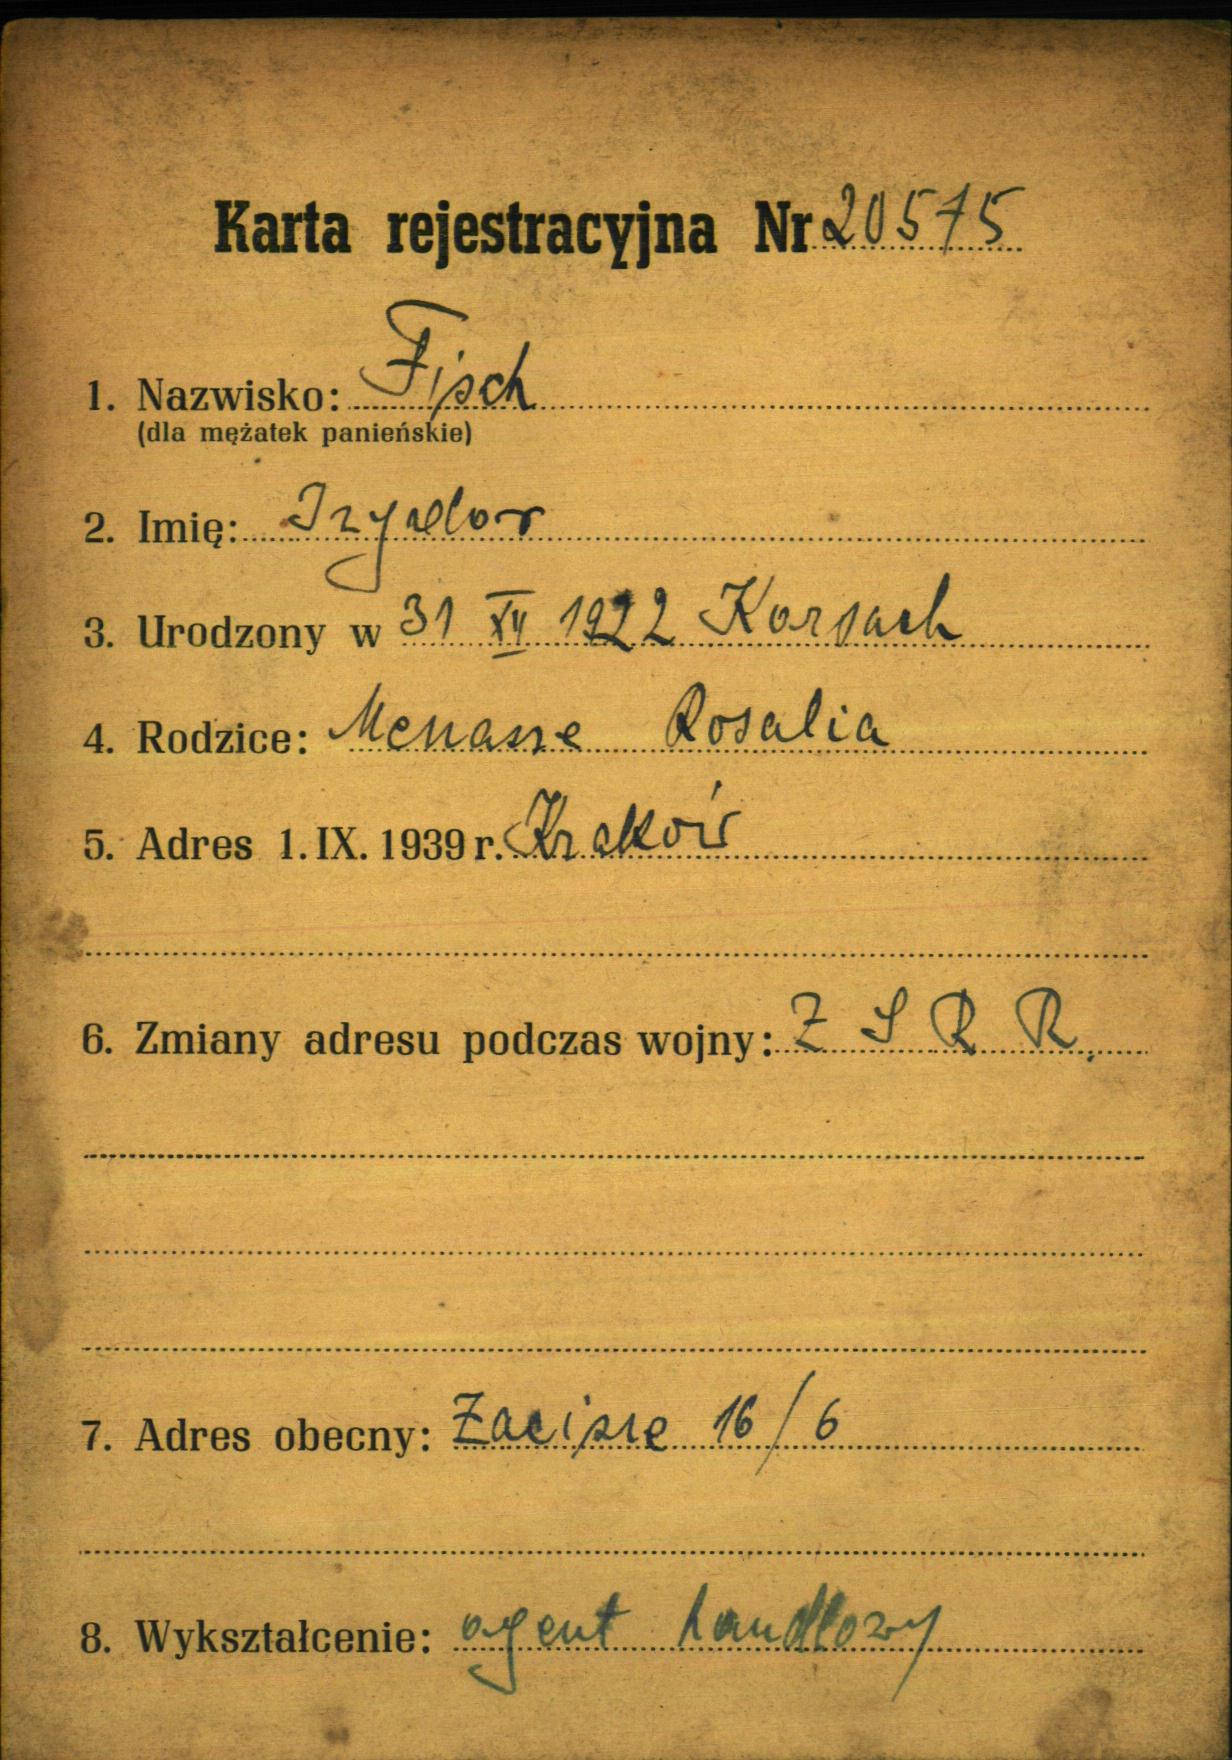 Karta rejestracyjna Nr 20575
1. Nazwisko: Fisch
(dla mężatek panieńskie)
2. Imię: Izydor
3. Urodzony w 31 XII 1922 Korsach
4. Rodzice: Menasze Rosalia
5. Adres 1. IX. 1939 r. Kraków
6. Zmiany adresu podczas wojny: Z S R R.
7. Adres obecny: Zacisze 16/6
8. Wykształcenie: agent handlowy